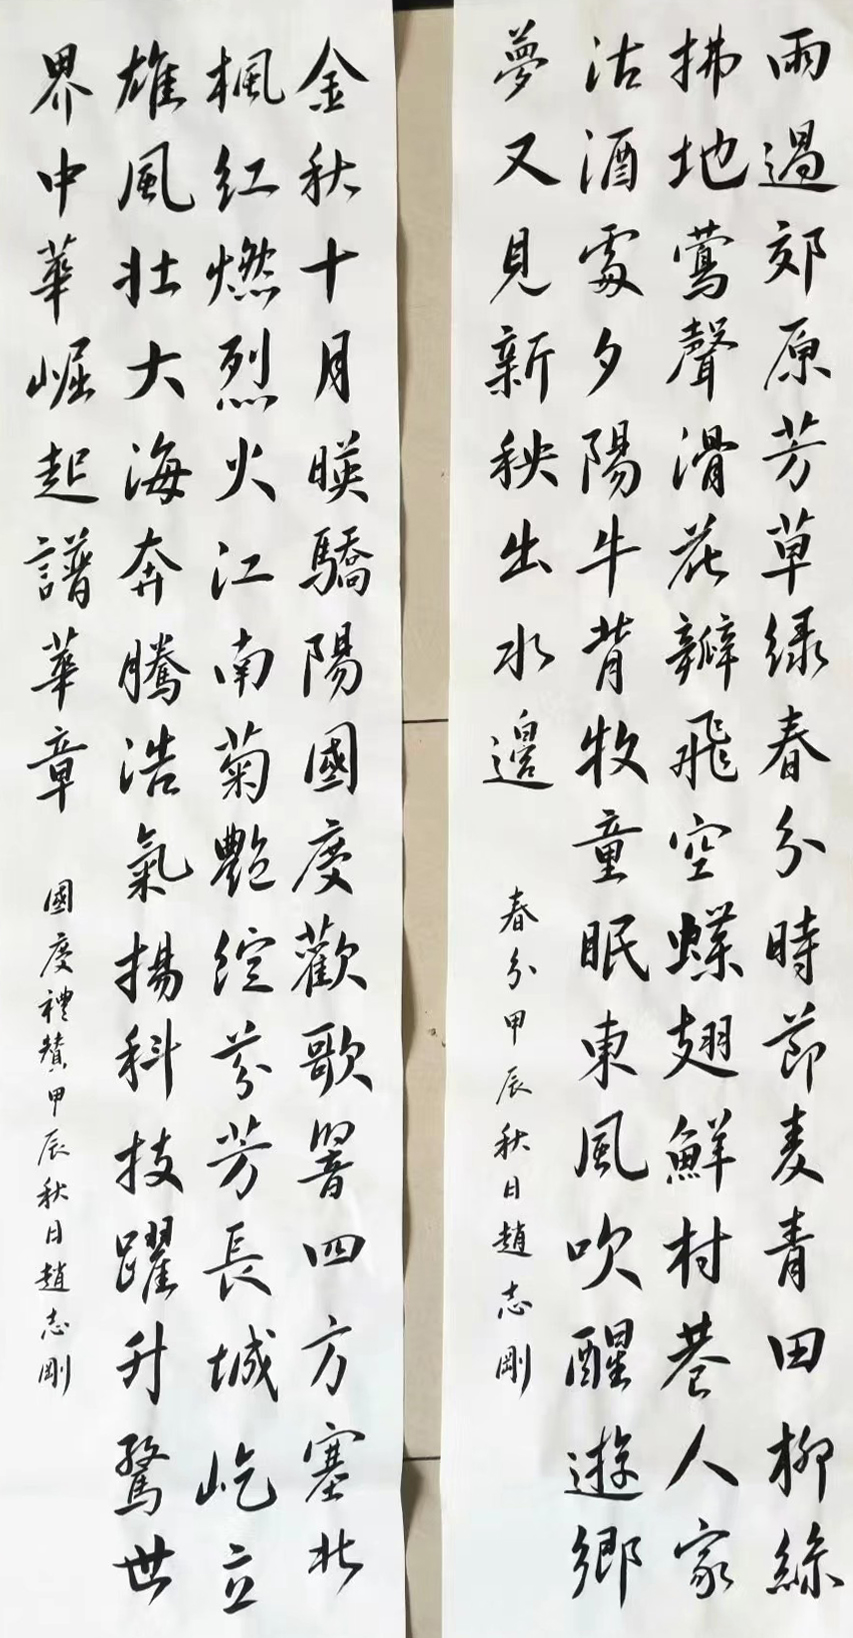 雨過郊原芳草绿春分時節麦青田柳絲
拂地鶯聲滑花瓣飛空蝶翅鮮村巷人家
沽酒處夕陽牛背牧童眠東風吹醒遊鄉
夢又見新秧出水邊
春分甲辰秋日趙志剛
金秋十月暎驕陽國度歡歌響四方塞北
楓红燃烈火江南菊艷綻芬芳長城屹立
雄風壮大海奔騰浩氣揚科技躍升驚世
界中華崛起譜華章
國度禮贊甲辰秋日趙志剛